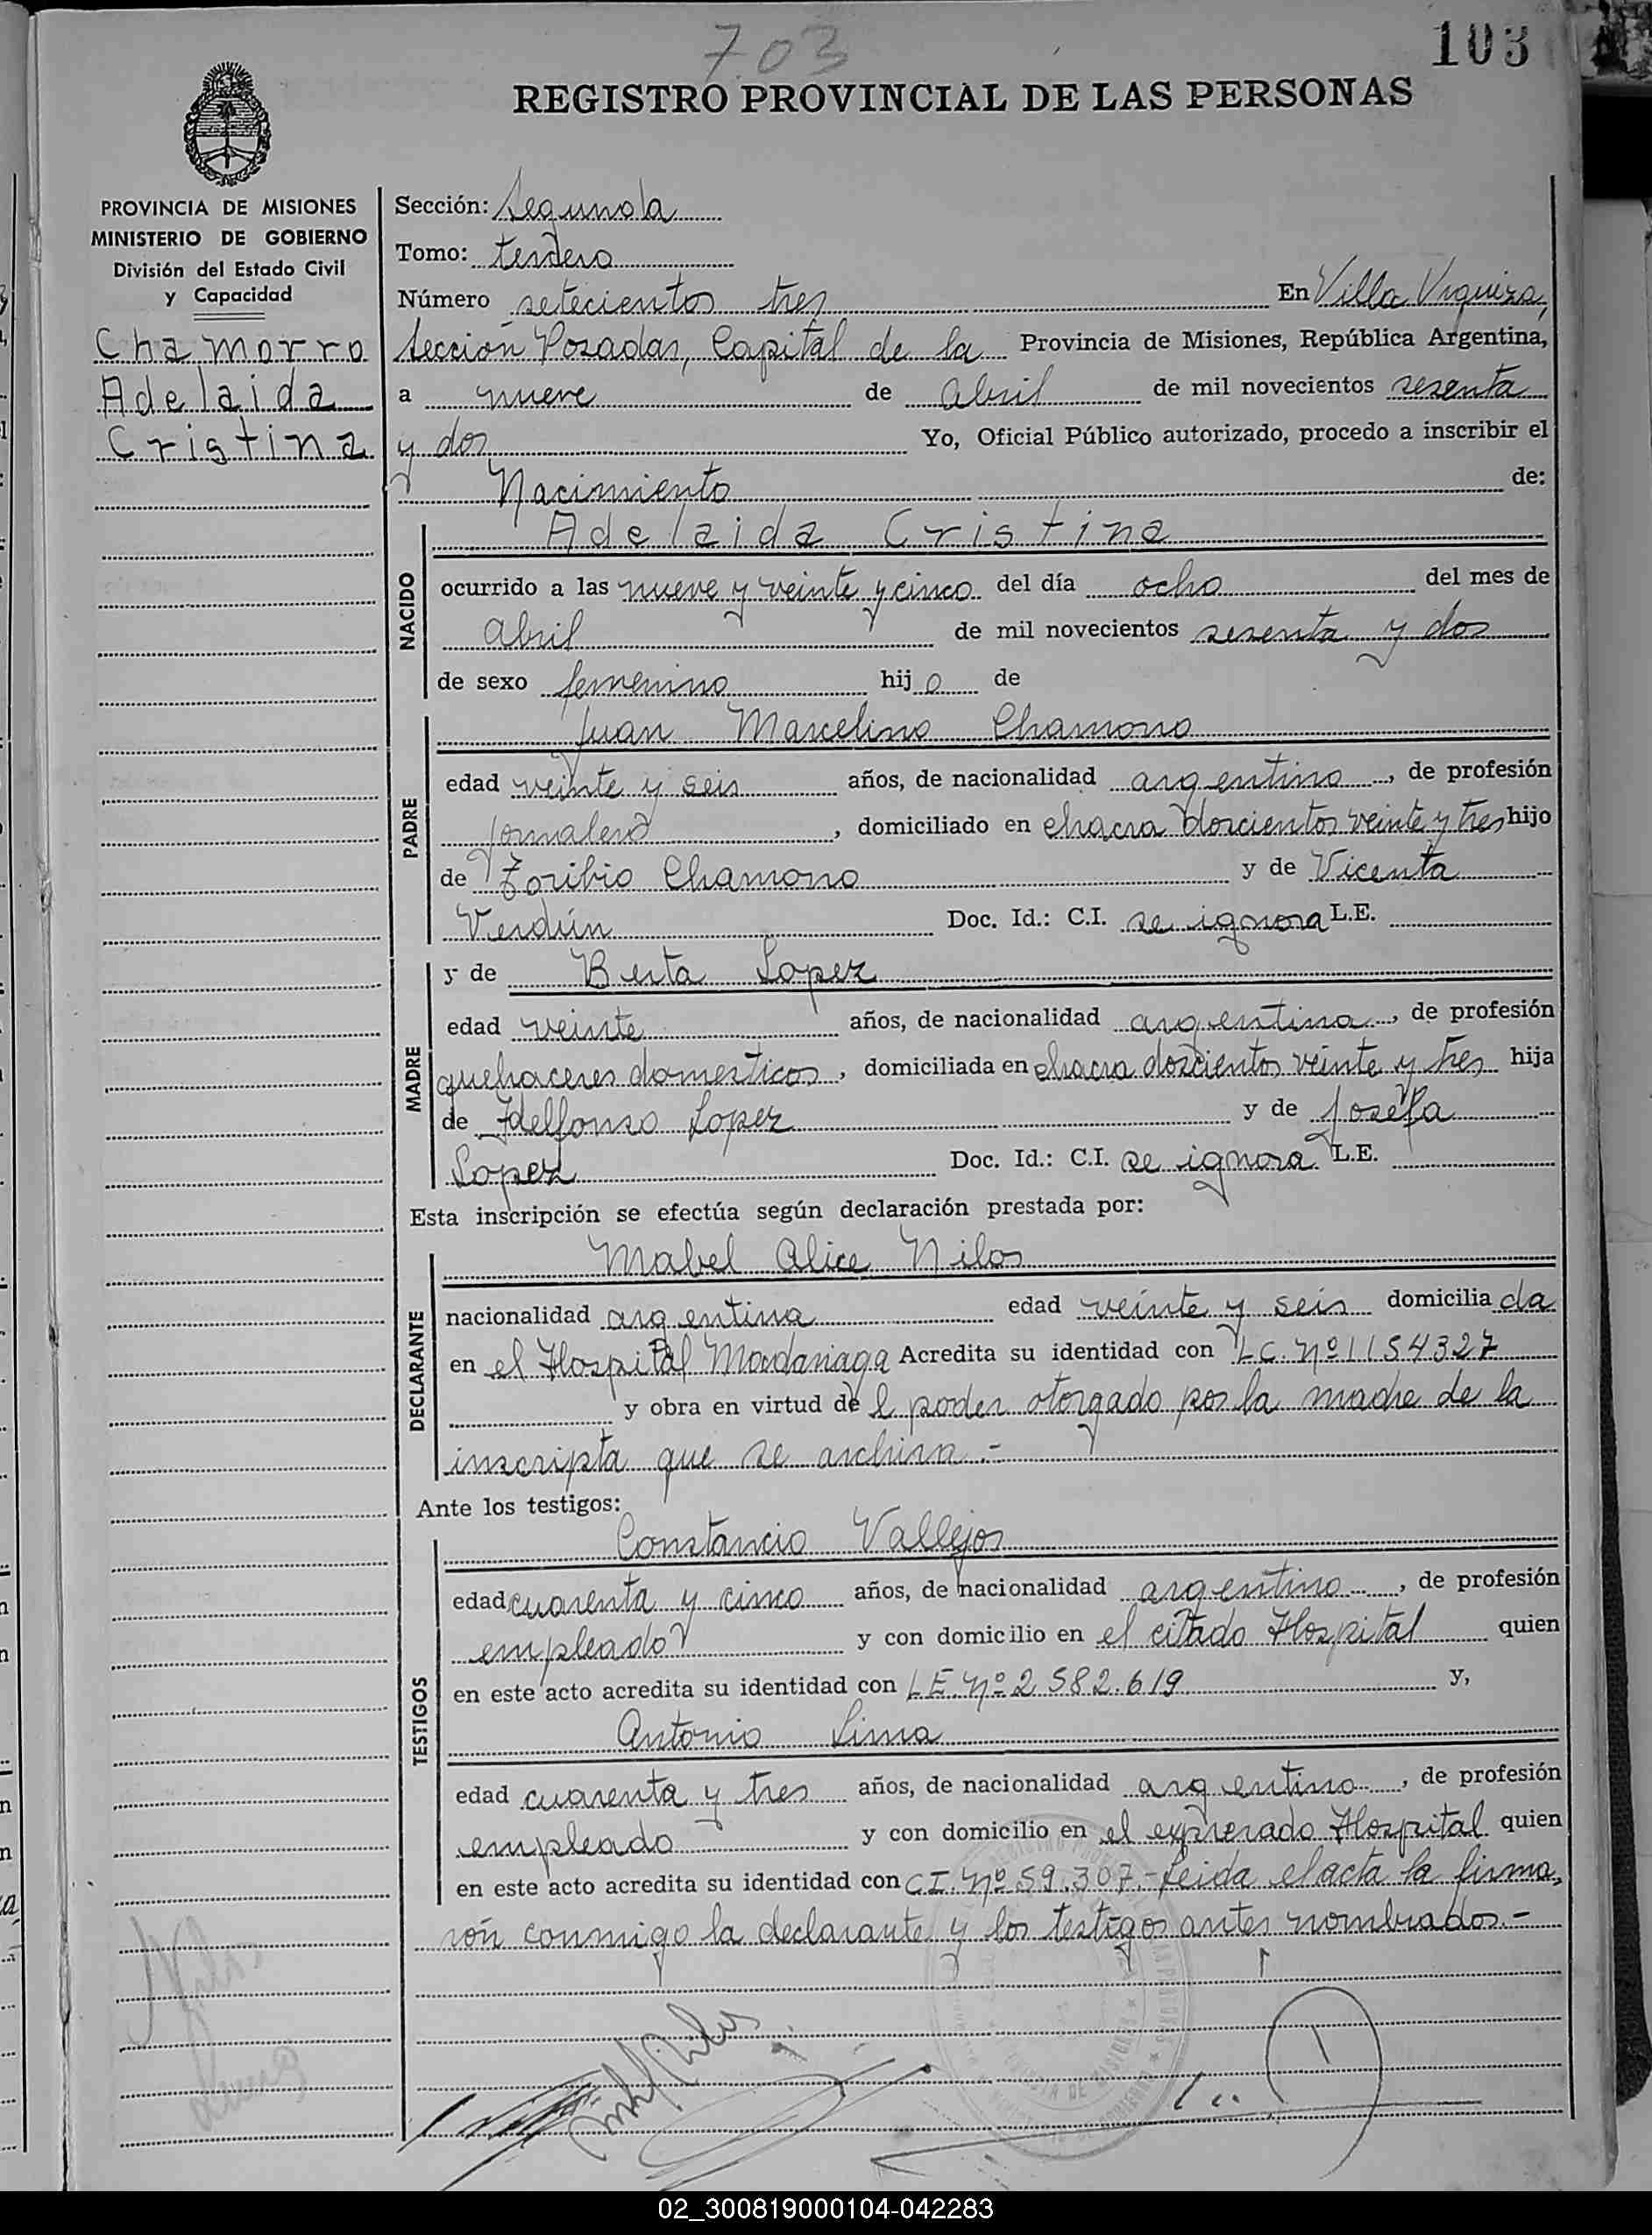 703
103
REGISTRO PROVINCIAL DE LAS PERSONAS
PROVINCIA DE MISIONES
MINISTERIO DE GOBIERNO
División del Estado Civil
y Capacidad
Chamorro
Adelaida
Cristina
Sección: Segunda
Tomo: tercero
Número setecientos tres En Villa Urquiza,
Sección Posadas, Capital de la Provincia de Misiones, República Argentina,
a nueve de abril de mil novecientos sesenta
y dos Yo, Oficial Público autorizado, procedo a inscribir el
Nacimiento de:
NACIDO
Adelaida Cristina
ocurrido a las nueve y veinte y cinco del día ocho del mes de
abril de mil novecientos sesenta y dos
de sexo femenino hijo de
PADRE
Juan Marcelino Chamorro
edad veinte y seis años, de nacionalidad argentino, de profesión
jornalero, domiciliado en chacra doscientos veinte y tres hijo
de Toribio Chamorro y de Vicenta
Verdún Doc. Id.: C.I. se ignora L.E.
MADRE
y de Berta Lopez
edad veinte años, de nacionalidad argentina, de profesión
quehaceres domesticos, domiciliada en chacra doscientos veinte y tres hija
de Idelfonso Lopez y de Josefa
Lopez Doc. Id.: C.I. se ignora L.E.
Esta inscripción se efectúa según declaración prestada por:
DECLARANTE
Mabel Alice Nilos
nacionalidad argentina edad veinte y seis domiciliada
en el Hospital Madariaga Acredita su identidad con L.C. Nº 1154327
y obra en virtud del poder otorgado por la madre de la
inscripta que se archiva.-
Ante los testigos:
TESTIGOS
Constancio Vallejos
edad cuarenta y cinco años, de nacionalidad argentino, de profesión
empleado y con domicilio en el citado Hospital quien
en este acto acredita su identidad con L.E. Nº 2.582.619 y,
Antonio Lima
edad cuarenta y tres años, de nacionalidad argentino, de profesión
empleado y con domicilio en el expresado Hospital quien
en este acto acredita su identidad con C.I. Nº 59.307.- Leida el acta la firma,
rón conmigo la declarante y los testigos antes nombrados.-
02_300819000104-042283